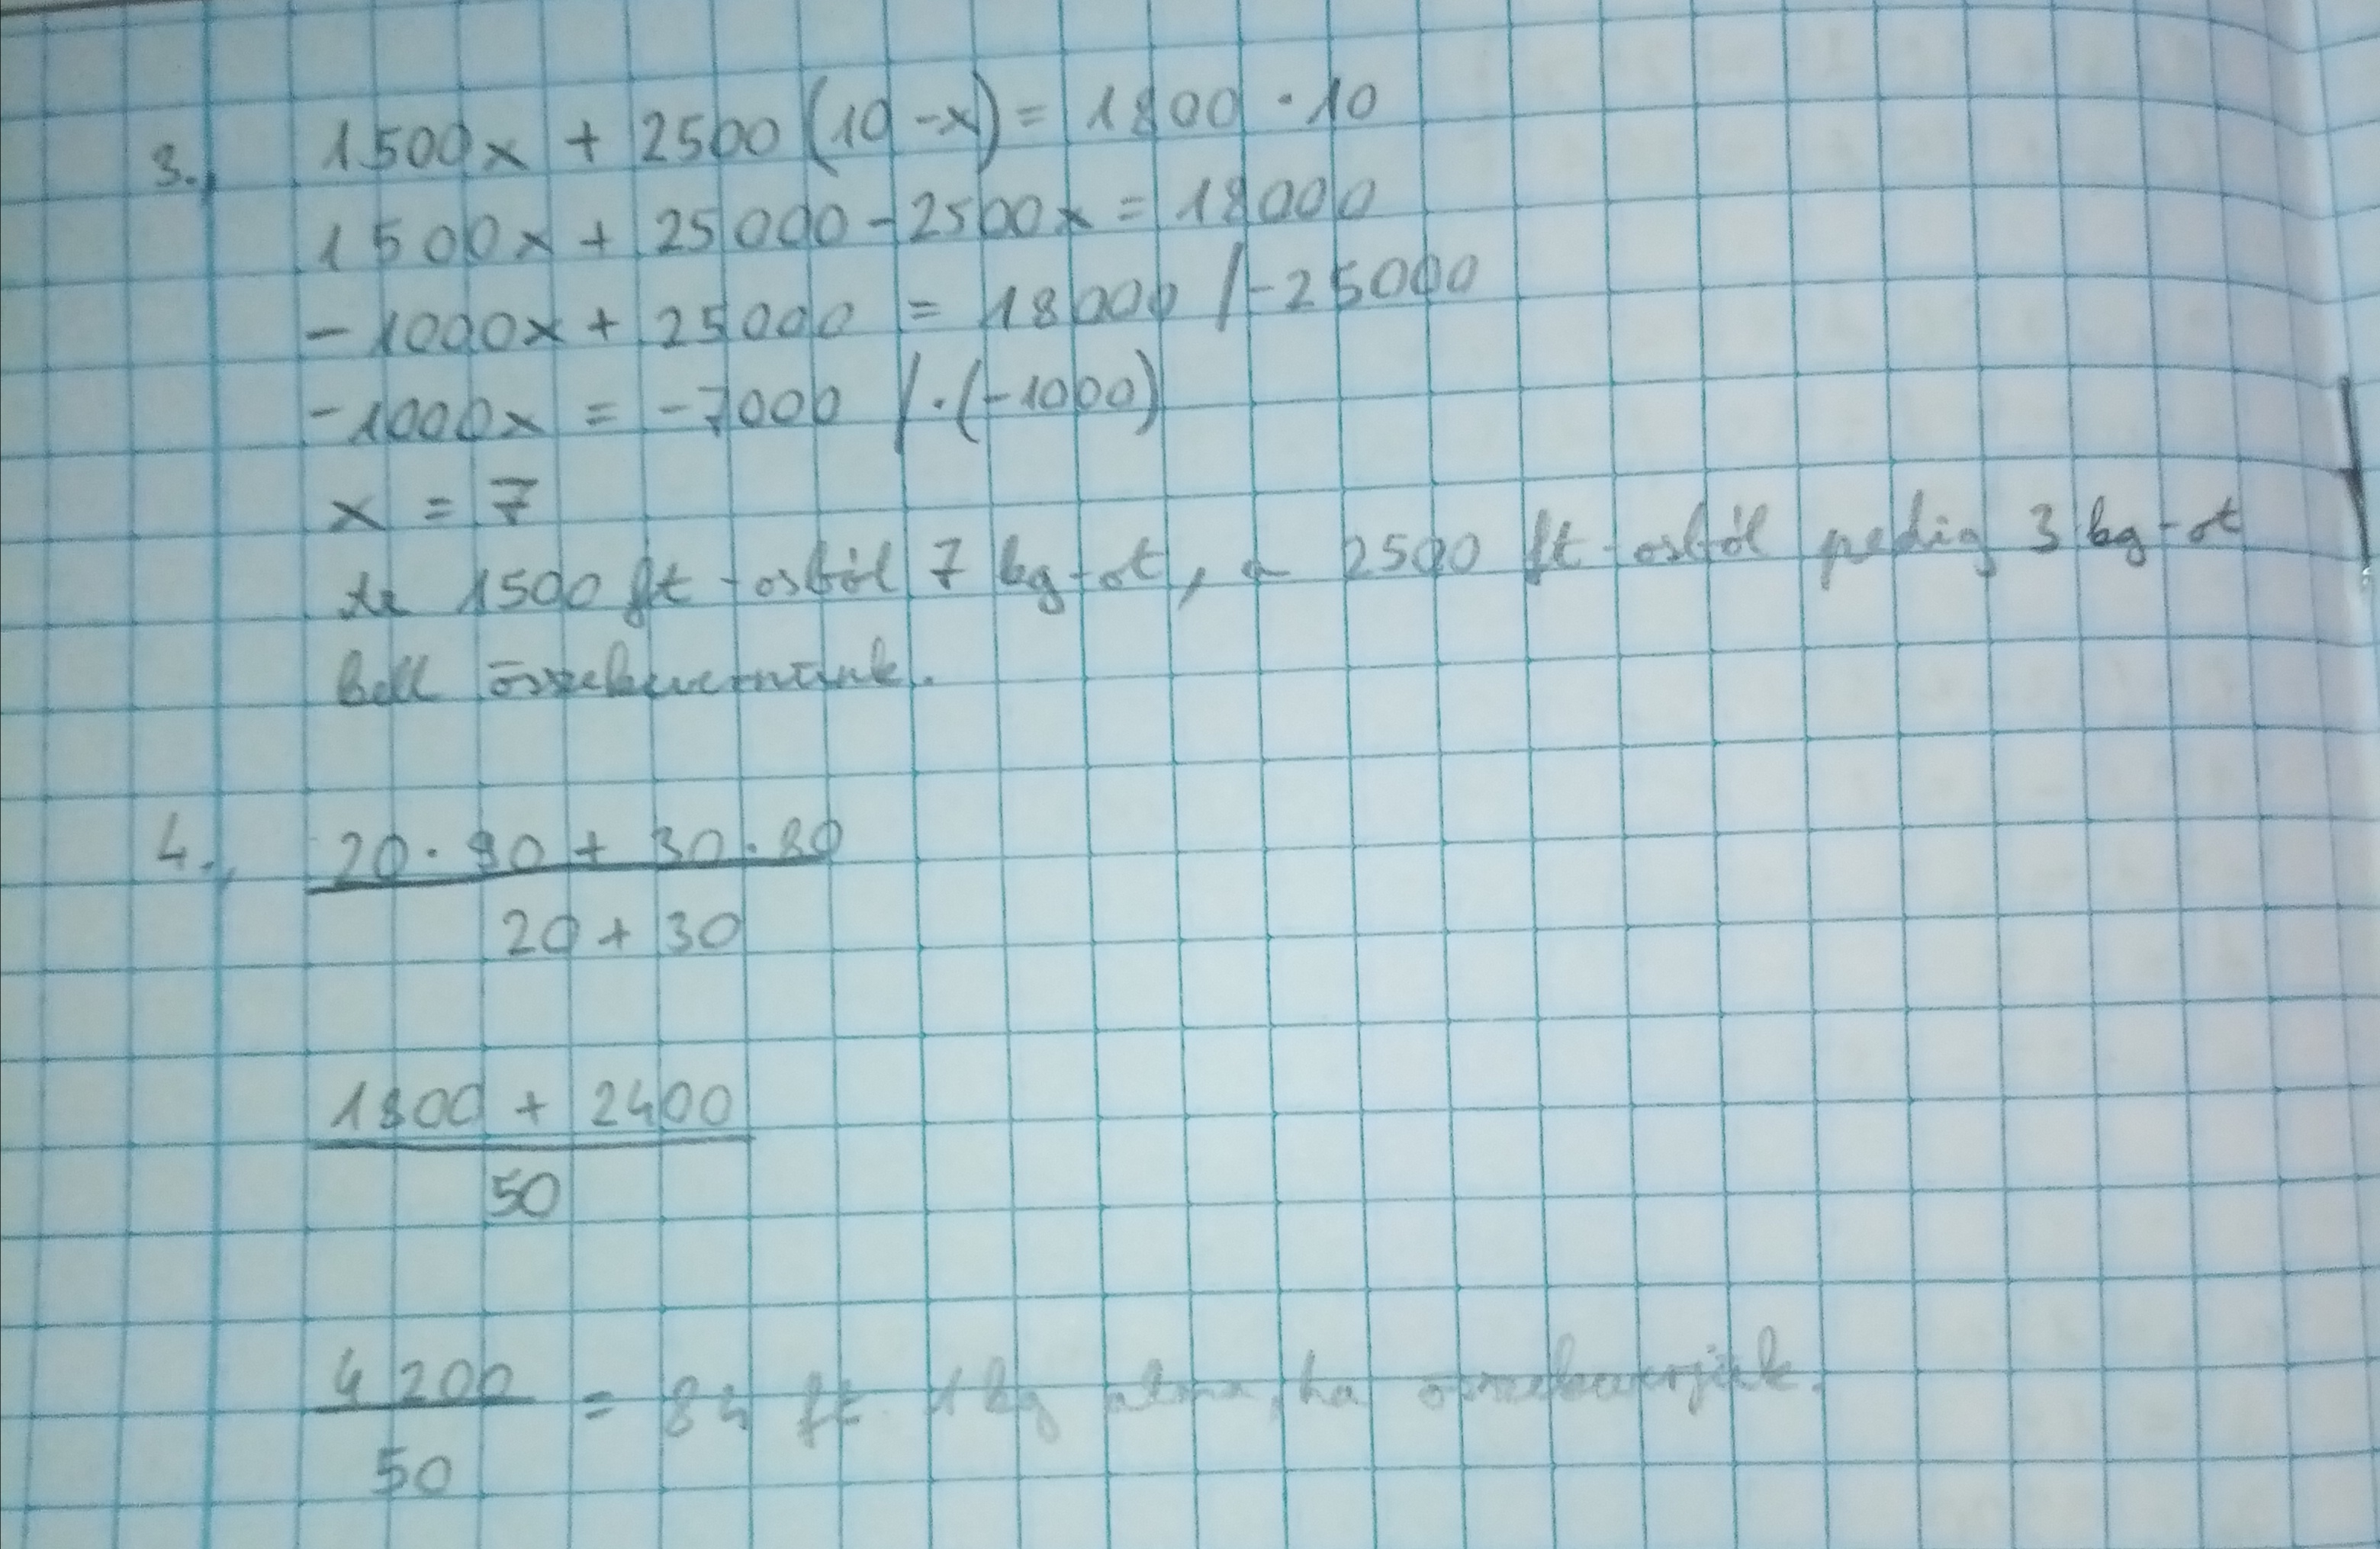 3., 1500x + 2500 (10 - x) = 1800 · 10
1500x + 25000 - 2500x = 18000
- 1000x + 25000 = 18000 / - 25000
- 1000x = - 7000 / · (-1000)
x = 7
Az 1500 ft-osból 7 kg-ot, a 2500 ft-osból pedig 3 kg-ot
kell összekevernünk.
4., 20 · 90 + 30 · 80
20 + 30
1800 + 2400
50
4200
50
= 84 ft 1 kg alma, ha összekeverjük.